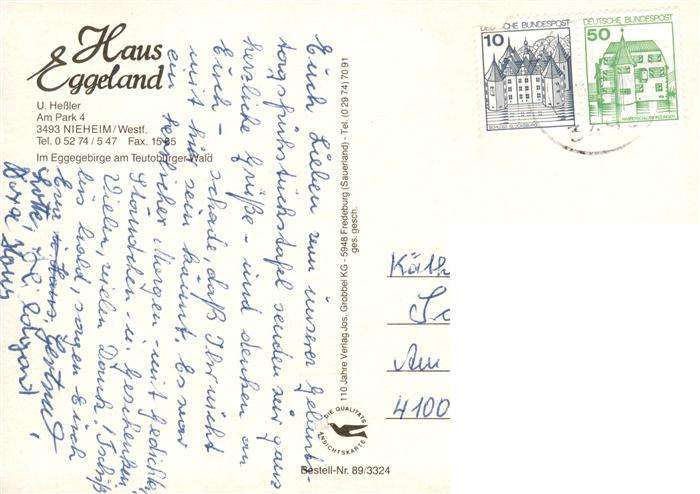 Haus
Eggeland
U. Heßler
Am Park 4
3493 NIEHEIM/Westf.
Tel. 0 52 74 / 5 47 Fax. 15 85
Im Eggegebirge am Teutoburger Wald
Euch Lieben von unserer Geburts-
tagsfrühstückstafel senden wir ganz
herzliche Grüße - und denken an
Euch - schade, daß Ihr nicht
mit hier sein könnt. Es war
ein festlicher Morgen - mit Gedichten,
Ständchen - u. Geschenken,
Vielen, vielen Dank! Tschüß
bis bald, sagen Euch
Eure Hans, Gertrud
Lotte,
110 Jahre Verlag Jos. Grobbel KG - 5948 Fredeburg (Sauerland) - Tel. (0 29 74) 70 91
ges. gesch.
DEUTSCHE BUNDESPOST
10
DEUTSCHE BUNDESPOST
50
Käth
Am
4100
DIE QUALITÄTS
ANSICHTSKARTE
Bestell-Nr. 89/3324